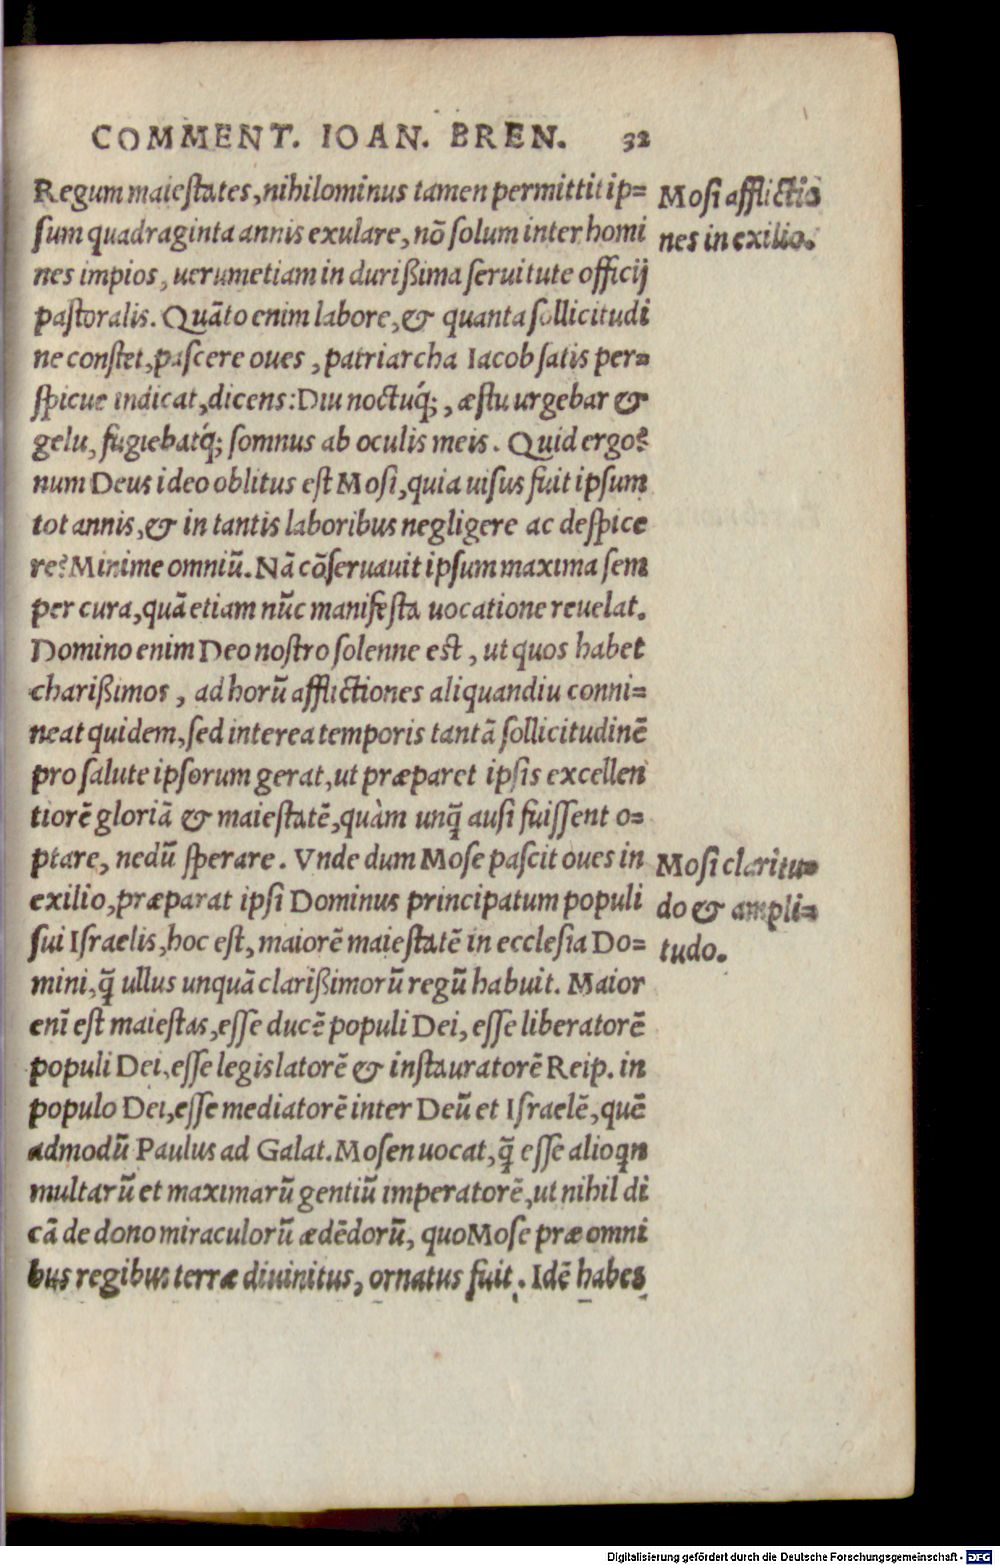 COMMENT. IOAN. BREN. 32
Regum maiestates, nihilominus tamen permittit ip=
sum quadraginta annis exulare, nõ solum inter homi
nes impios, uerumetiam in durißima seruitute officij
pastoralis. Quãto enim labore, & quanta sollicitudi
ne constet, pascere oues, patriarcha Iacob satis per=
spicue indicat, dicens: Diu noctuq́;, æstu urgebar &
gelu, fugiebatq́; somnus ab oculis meis. Quid ergo?
num Deus ideo oblitus est Mosi, quia uisus fuit ipsum
tot annis, & in tantis laboribus negligere ac despice
re? Minime omniũ. Nã cõseruauit ipsum maxima sem
per cura, quã etiam nũc manifesta uocatione reuelat.
Domino enim Deo nostro solenne est, ut quos habet
charißimos, ad horũ afflictiones aliquandiu conni=
neat quidem, sed interea temporis tantã sollicitudinẽ
pro salute ipsorum gerat, ut præparet ipsis excellen
tiorẽ gloriã & maiestatẽ, quàm unq̃ ausi fuissent o=
ptare, nedũ sperare. Vnde dum Mose pascit oues in
exilio, præparat ipsi Dominus principatum populi
sui Israelis, hoc est, maiorẽ maiestatẽ in ecclesia Do=
mini, q̃ ullus unquã clarißimorũ regũ habuit. Maior
enĩ est maiestas, esse ducẽ populi Dei, esse liberatorẽ
populi Dei, esse legislatorẽ & instauratorẽ Reip. in
populo Dei, esse mediatorẽ inter Deũ et Israelẽ, quẽ
admodũ Paulus ad Galat. Mosen uocat, q̃ esse alioqn
multarũ et maximarũ gentiũ imperatorẽ, ut nihil di
cã de dono miraculorũ ædẽdorũ, quo Mose præ omni
bus regibus terræ diuinitus, ornatus fuit. Idẽ habes
Mosi afflictio
nes in exilio.
Mosi claritu=
do & ampli=
tudo.
Digitalisierung gefördert durch die Deutsche Forschungsgemeinschaft - DFG